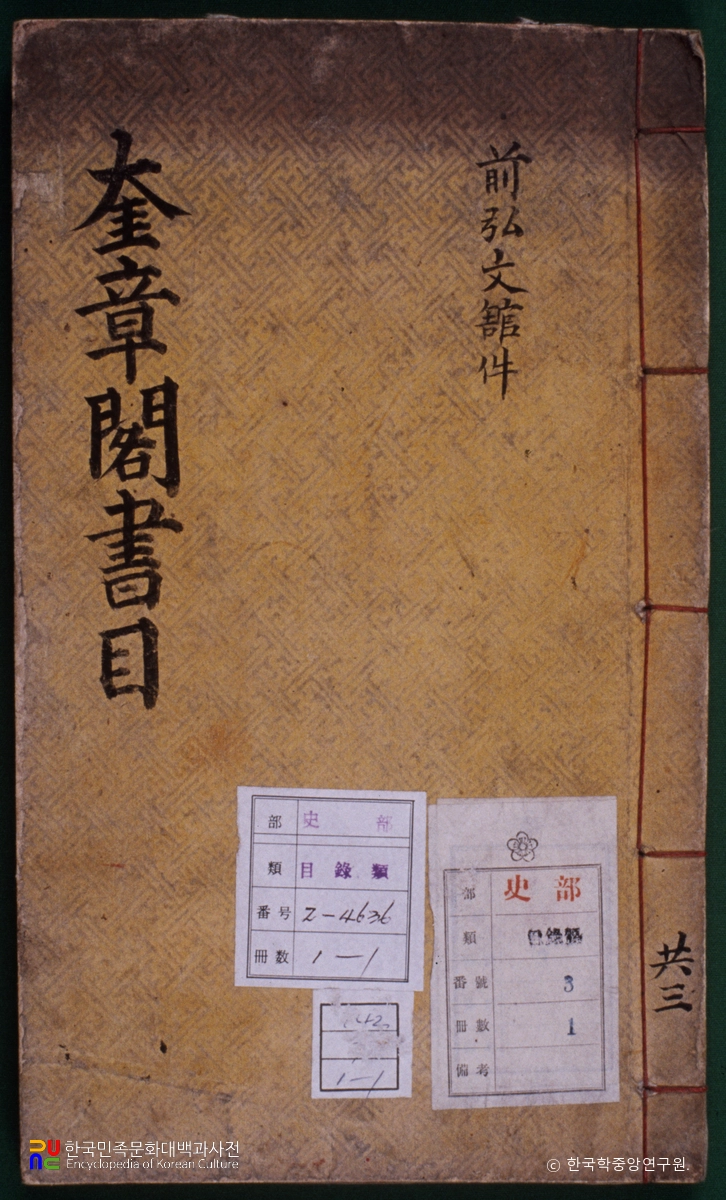 奎章閣書目
前弘文館件
共三
部 史部
類 目錄類
番号 2-4636
冊数 1-1
部 史部
類 目錄類
番號 3
冊數 1
備考
1-1
한국민족문화대백과사전
Encyclopedia of Korean Culture
© 한국학중앙연구원.